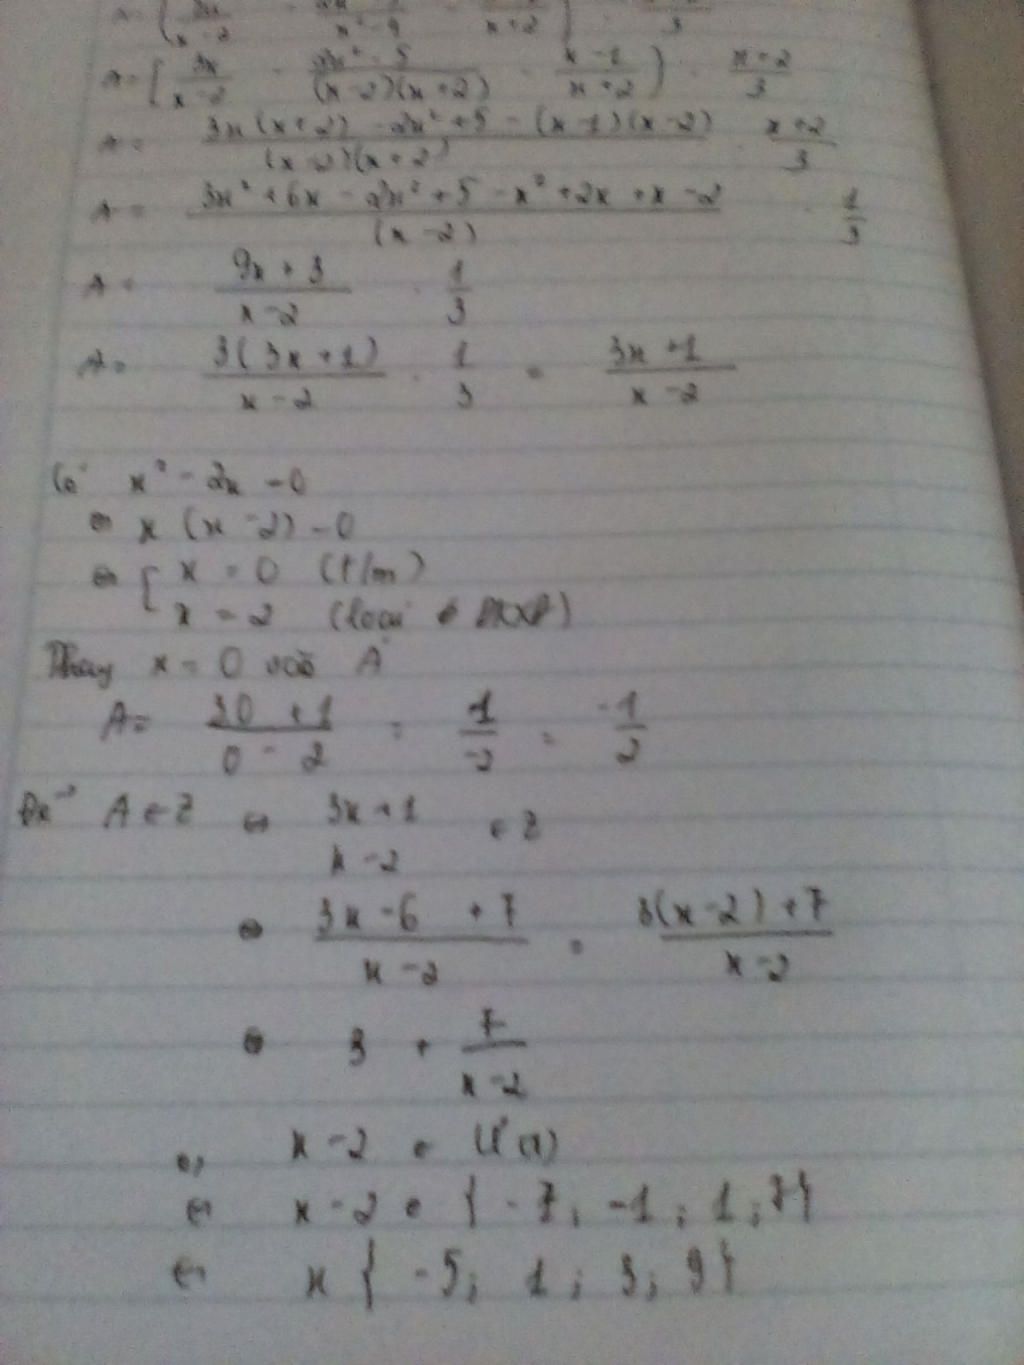 A = [ 3x/(x-2) - (2x² - 5)/((x-2)(x+2)) - (x-1)/(x+2) ) . (x+2)/3
A = (3x(x+2) - 2x² + 5 - (x-1)(x-2))/((x-2)(x+2)) . (x+2)/3
A = (3x² + 6x - 2x² + 5 - x² + 2x + x - 2)/(x-2) . 1/3
A = (9x + 3)/(x-2) . 1/3
A = 3(3x+1)/(x-2) . 1/3 = (3x+1)/(x-2)
Có x² - 2x = 0
⇔ x (x-2) = 0
⇔ [ x = 0 (t/m)
x = 2 (loại ĐKXĐ)
Thay x = 0 vào A
A = (3.0 + 1)/(0 - 2) = 1/-2 = -1/2
Để A ∈ Z ⇔ (3x+1)/(x-2) ∈ Z
⇔ (3x - 6 + 7)/(x-2) = (3(x-2) + 7)/(x-2)
⇔ 3 + 7/(x-2)
⇔ x-2 ∈ Ư(7)
⇔ x-2 ∈ { -7; -1; 1; 7}
⇔ x { -5; 1; 3; 9}